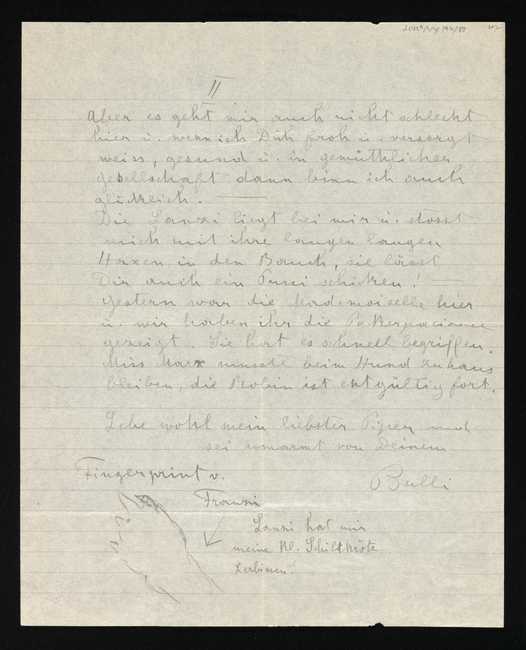 II
Aber es geht mir auch nicht schlecht
hier u. wenn ich Dich froh u. versorgt
weiss, gesund u. in gemüthlicher
Gesellschaft dann binn ich auch
glücklich.
Die Lanxi liegt bei mir u. stosst
mich mit ihre langen langen
Haxen in den Bauch, sie lässt
Dir auch ein Pussi schicken!
Gestern war die Mademoiselle hier
u. wir haben ihr die
gezeigt. Sie hat es schnell begriffen.
Miss Marx musste beim Hund zuhaus
bleiben, die Robin ist entgültig fort.
Lebe wohl mein liebster und
sei umarmt von Deinem
Bulli
Fingerprint v.
Franzi
Lanxi hat mir
meine kl. Schildkröte
zerbissen!